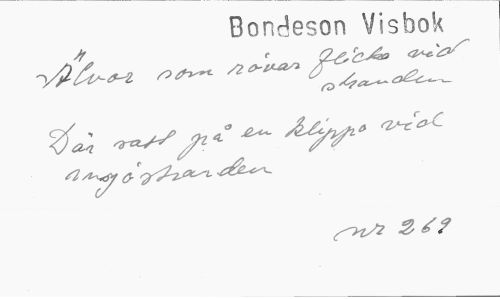 Bondeson Visbok
Älvor som rövar flicka vid
stranden
Där satt på en klippa vid
insjöstranden
nr 269